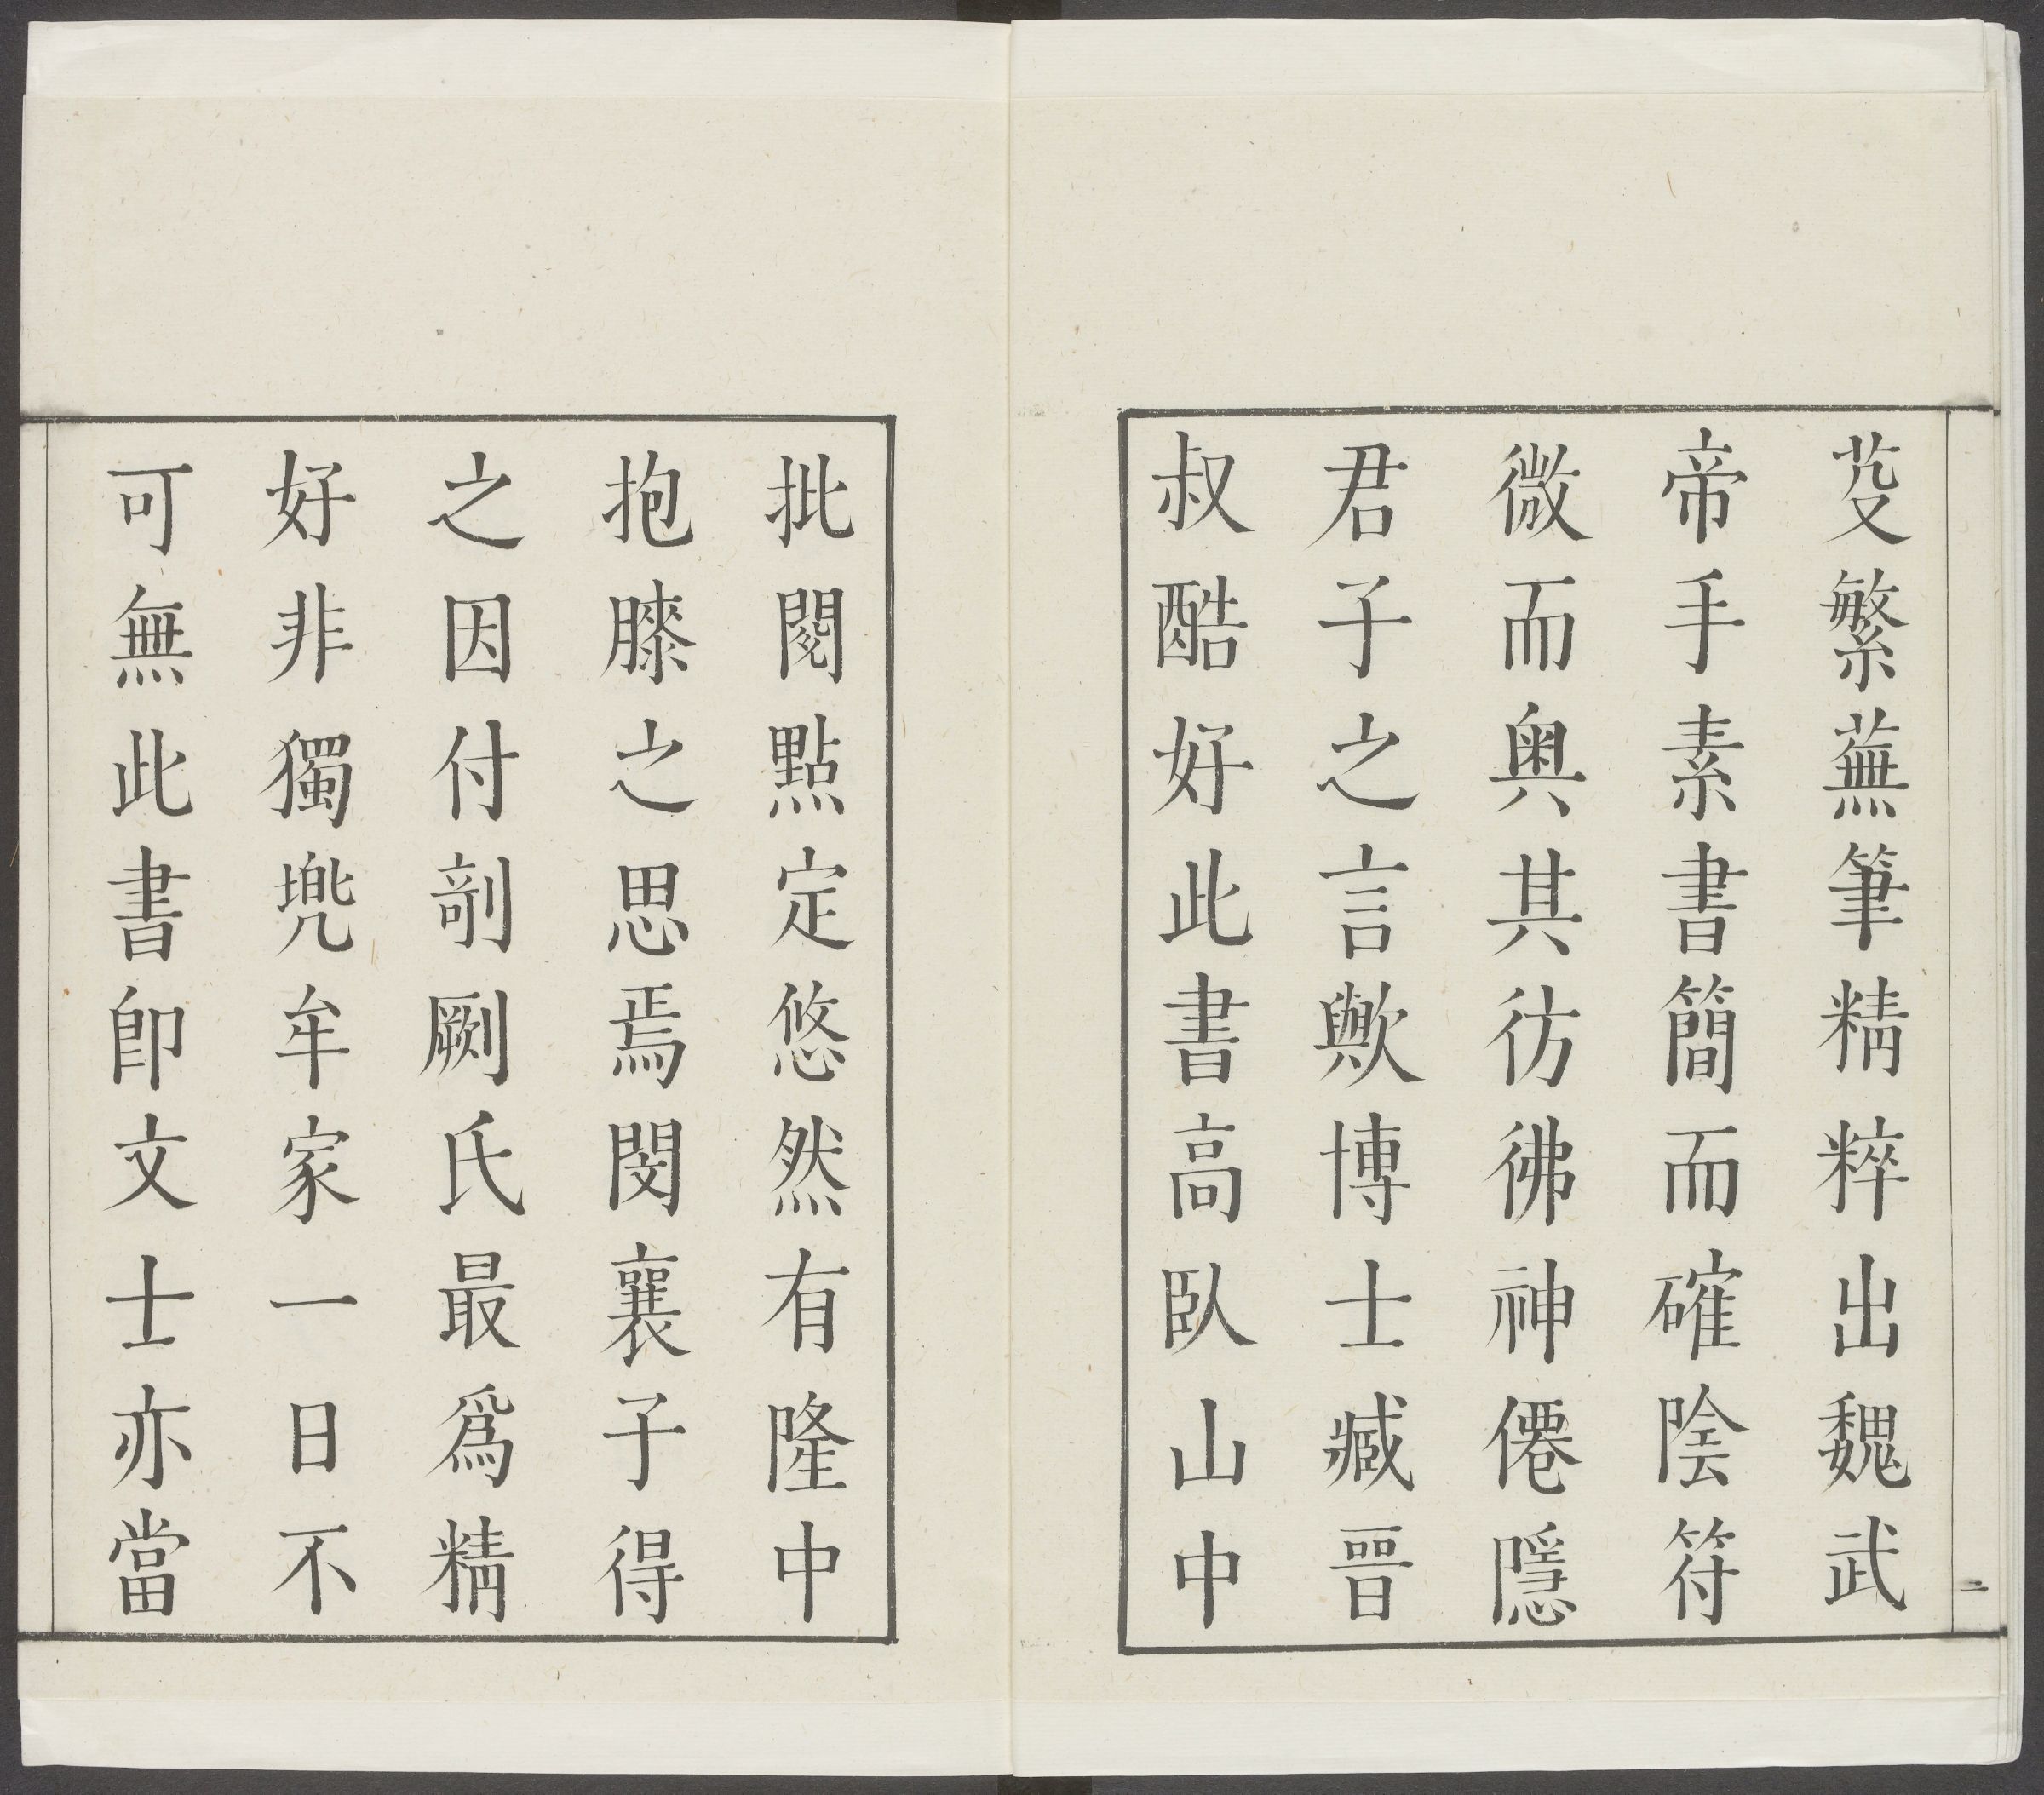 芟繁蕪筆精粹出魏武
帝手素書簡而確陰符
微而奧其彷彿神僊隱
君子之言歟博士臧晉
叔酷好此書高臥山中
二
批閱點定悠然有隆中
抱膝之思焉閔襄子得
之因付剞劂氏最爲精
好非獨兠牟家一日不
可無此書卽文士亦當